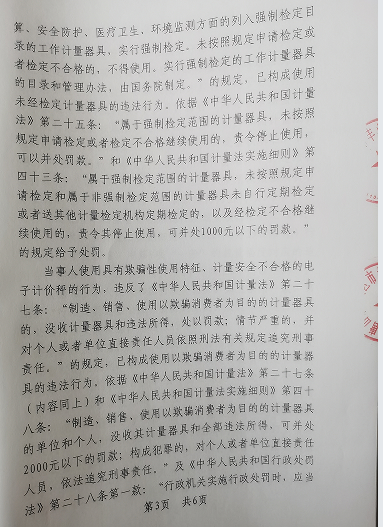 算、安全防护、医疗卫生、环境监测方面的列入强制检定目
录的工作计量器具，实行强制检定。未按照规定申请检定或
者检定不合格的，不得使用。实行强制检定的工作计量器具
的目录和管理办法，由国务院制定。”的规定，已构成使用
未经检定计量器具的违法行为。依据《中华人民共和国计量
法》第二十五条：“属于强制检定范围的计量器具，未按照
规定申请检定或者检定不合格继续使用的，责令停止使用，
可以并处罚款。”和《中华人民共和国计量法实施细则》第
四十三条：“属于强制检定范围的计量器具，未按照规定申
请检定和属于非强制检定范围的计量器具未自行定期检定
或者送其他计量检定机构定期检定的，以及经检定不合格继
续使用的，责令其停止使用，可并处1000元以下的罚款。”
的规定给予处罚。
当事人使用具有欺骗性使用特征、计量安全不合格的电
子计价秤的行为，违反了《中华人民共和国计量法》第二十
七条：“制造、销售、使用以欺骗消费者为目的的计量器具
的，没收计量器具和违法所得，处以罚款；情节严重的，并
对个人或者单位直接责任人员依照刑法有关规定追究刑事
责任。”的规定，已构成使用以欺骗消费者为目的的计量器
具的违法行为。依据《中华人民共和国计量法》第二十七条
（内容同上）和《中华人民共和国计量法实施细则》第四十
八条：“制造、销售、使用以欺骗消费者为目的的计量器具
的单位和个人，没收其计量器具和全部违法所得，可并处
2000元以下的罚款；构成犯罪的，对个人或者单位直接责任
人员，依法追究刑事责任。”及《中华人民共和国行政处罚
法》第二十八条第一款：“行政机关实施行政处罚时，应当
第3页 共6页